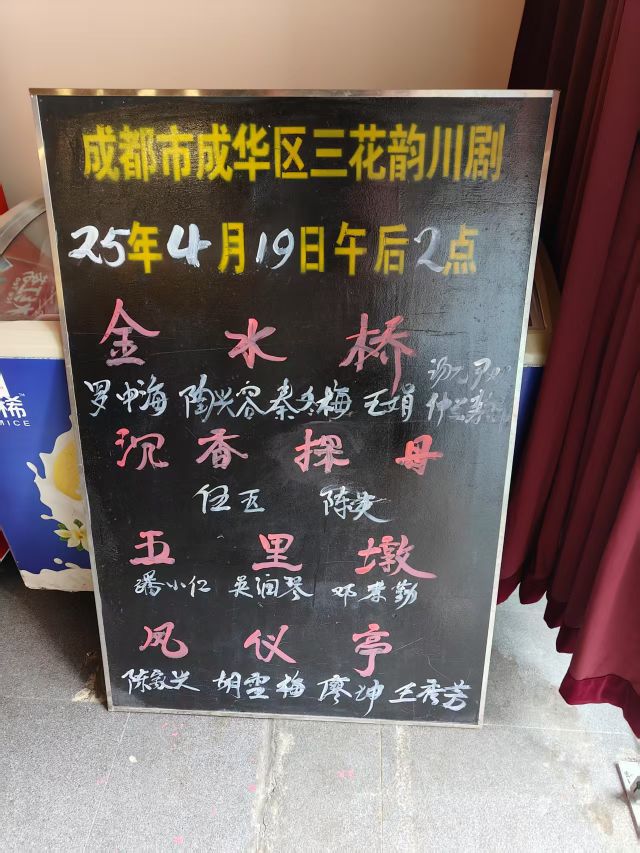 成都市成华区三花韵川剧
25年4月19日午后2点
金水桥
罗中海 陶兴容 秦冬梅 王娟
沉香探母
伍五 陈英
五里墩
潘小仁 吴润琴 邓荣勤
凤仪亭
陈家兴 胡雪梅 廖坤 王秀芳
稀
MICE